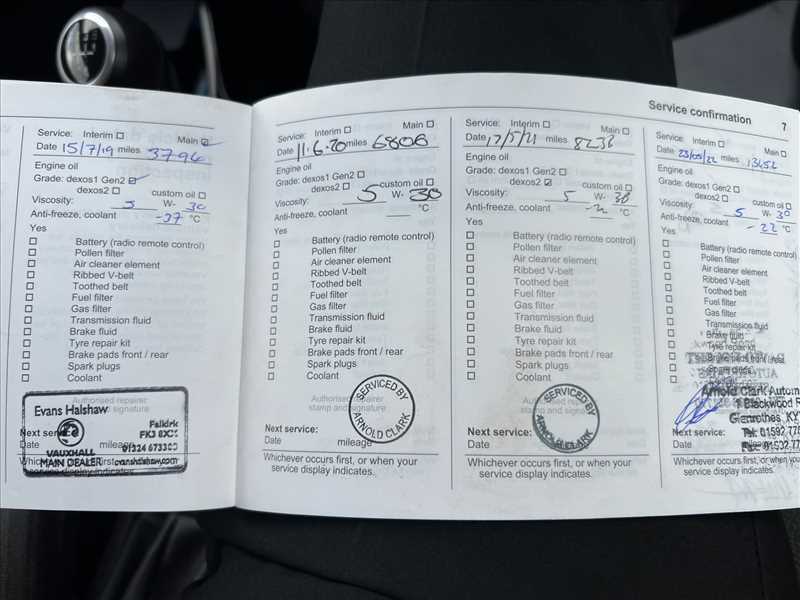 Service confirmation 7
Service: Interim ☐ Main ☑
Date 15/7/19 miles 3796
Engine oil
Grade: dexos1 Gen2 ☑
dexos2 ☐ custom oil ☐
Viscosity: 5 W- 30
Anti-freeze, coolant -37 °C
Yes
☐ Battery (radio remote control)
☐ Pollen filter
☐ Air cleaner element
☐ Ribbed V-belt
☐ Toothed belt
☐ Fuel filter
☐ Gas filter
☐ Transmission fluid
☐ Brake fluid
☐ Tyre repair kit
☐ Brake pads front / rear
☐ Spark plugs
☐ Coolant
Authorised repairer
stamp and signature
Evans Halshaw
Falkirk
FK2
01324
VAUXHALL
MAIN DEALER evanshalshaw.com
Next service:
Date mileage
Whichever occurs first, or when your
service display indicates.
Service: Interim ☐ Main ☐
Date 11.6.20 miles 6806
Engine oil
Grade: dexos1 Gen2 ☐
dexos2 ☐ custom oil ☐
Viscosity: 5 W- 30
Anti-freeze, coolant °C
Yes
☐ Battery (radio remote control)
☐ Pollen filter
☐ Air cleaner element
☐ Ribbed V-belt
☐ Toothed belt
☐ Fuel filter
☐ Gas filter
☐ Transmission fluid
☐ Brake fluid
☐ Tyre repair kit
☐ Brake pads front / rear
☐ Spark plugs
☐ Coolant
Authorised repairer
stamp and signature
SERVICED BY
ARNOLD CLARK
Next service:
Date mileage
Whichever occurs first, or when your
service display indicates.
Service: Interim ☐ Main ☐
Date 17/5/21 miles 8236
Engine oil
Grade: dexos1 Gen2 ☐
dexos2 ☑ custom oil ☐
Viscosity: 5 W- 30
Anti-freeze, coolant °C
Yes
☐ Battery (radio remote control)
☐ Pollen filter
☐ Air cleaner element
☐ Ribbed V-belt
☐ Toothed belt
☐ Fuel filter
☐ Gas filter
☐ Transmission fluid
☐ Brake fluid
☐ Tyre repair kit
☐ Brake pads front / rear
☐ Spark plugs
☐ Coolant
Authorised repairer
stamp and signature
SERVICED BY
ARNOLD CLARK
Next service:
Date mileage
Whichever occurs first, or when your
service display indicates.
Service: Interim ☐ Main ☐
Date 23/05/22 miles 13452
Engine oil
Grade: dexos1 Gen2 ☐
dexos2 ☐ custom oil ☐
Viscosity: 5 W- 30
Anti-freeze, coolant -22 °C
Yes
☐ Battery (radio remote control)
☐ Pollen filter
☐ Air cleaner element
☐ Ribbed V-belt
☐ Toothed belt
☐ Fuel filter
☐ Gas filter
☐ Transmission fluid
☐ Brake fluid
☐ Tyre repair kit
☐ Brake pads front / rear
☐ Spark plugs
☐ Coolant
Arnold Clark Autom
1 Blackwood R
Glenrothes, KY
Tel: 01592 77
Fax: 01592 77
Next service:
Date mileage
Whichever occurs first, or when you
service display indicates.